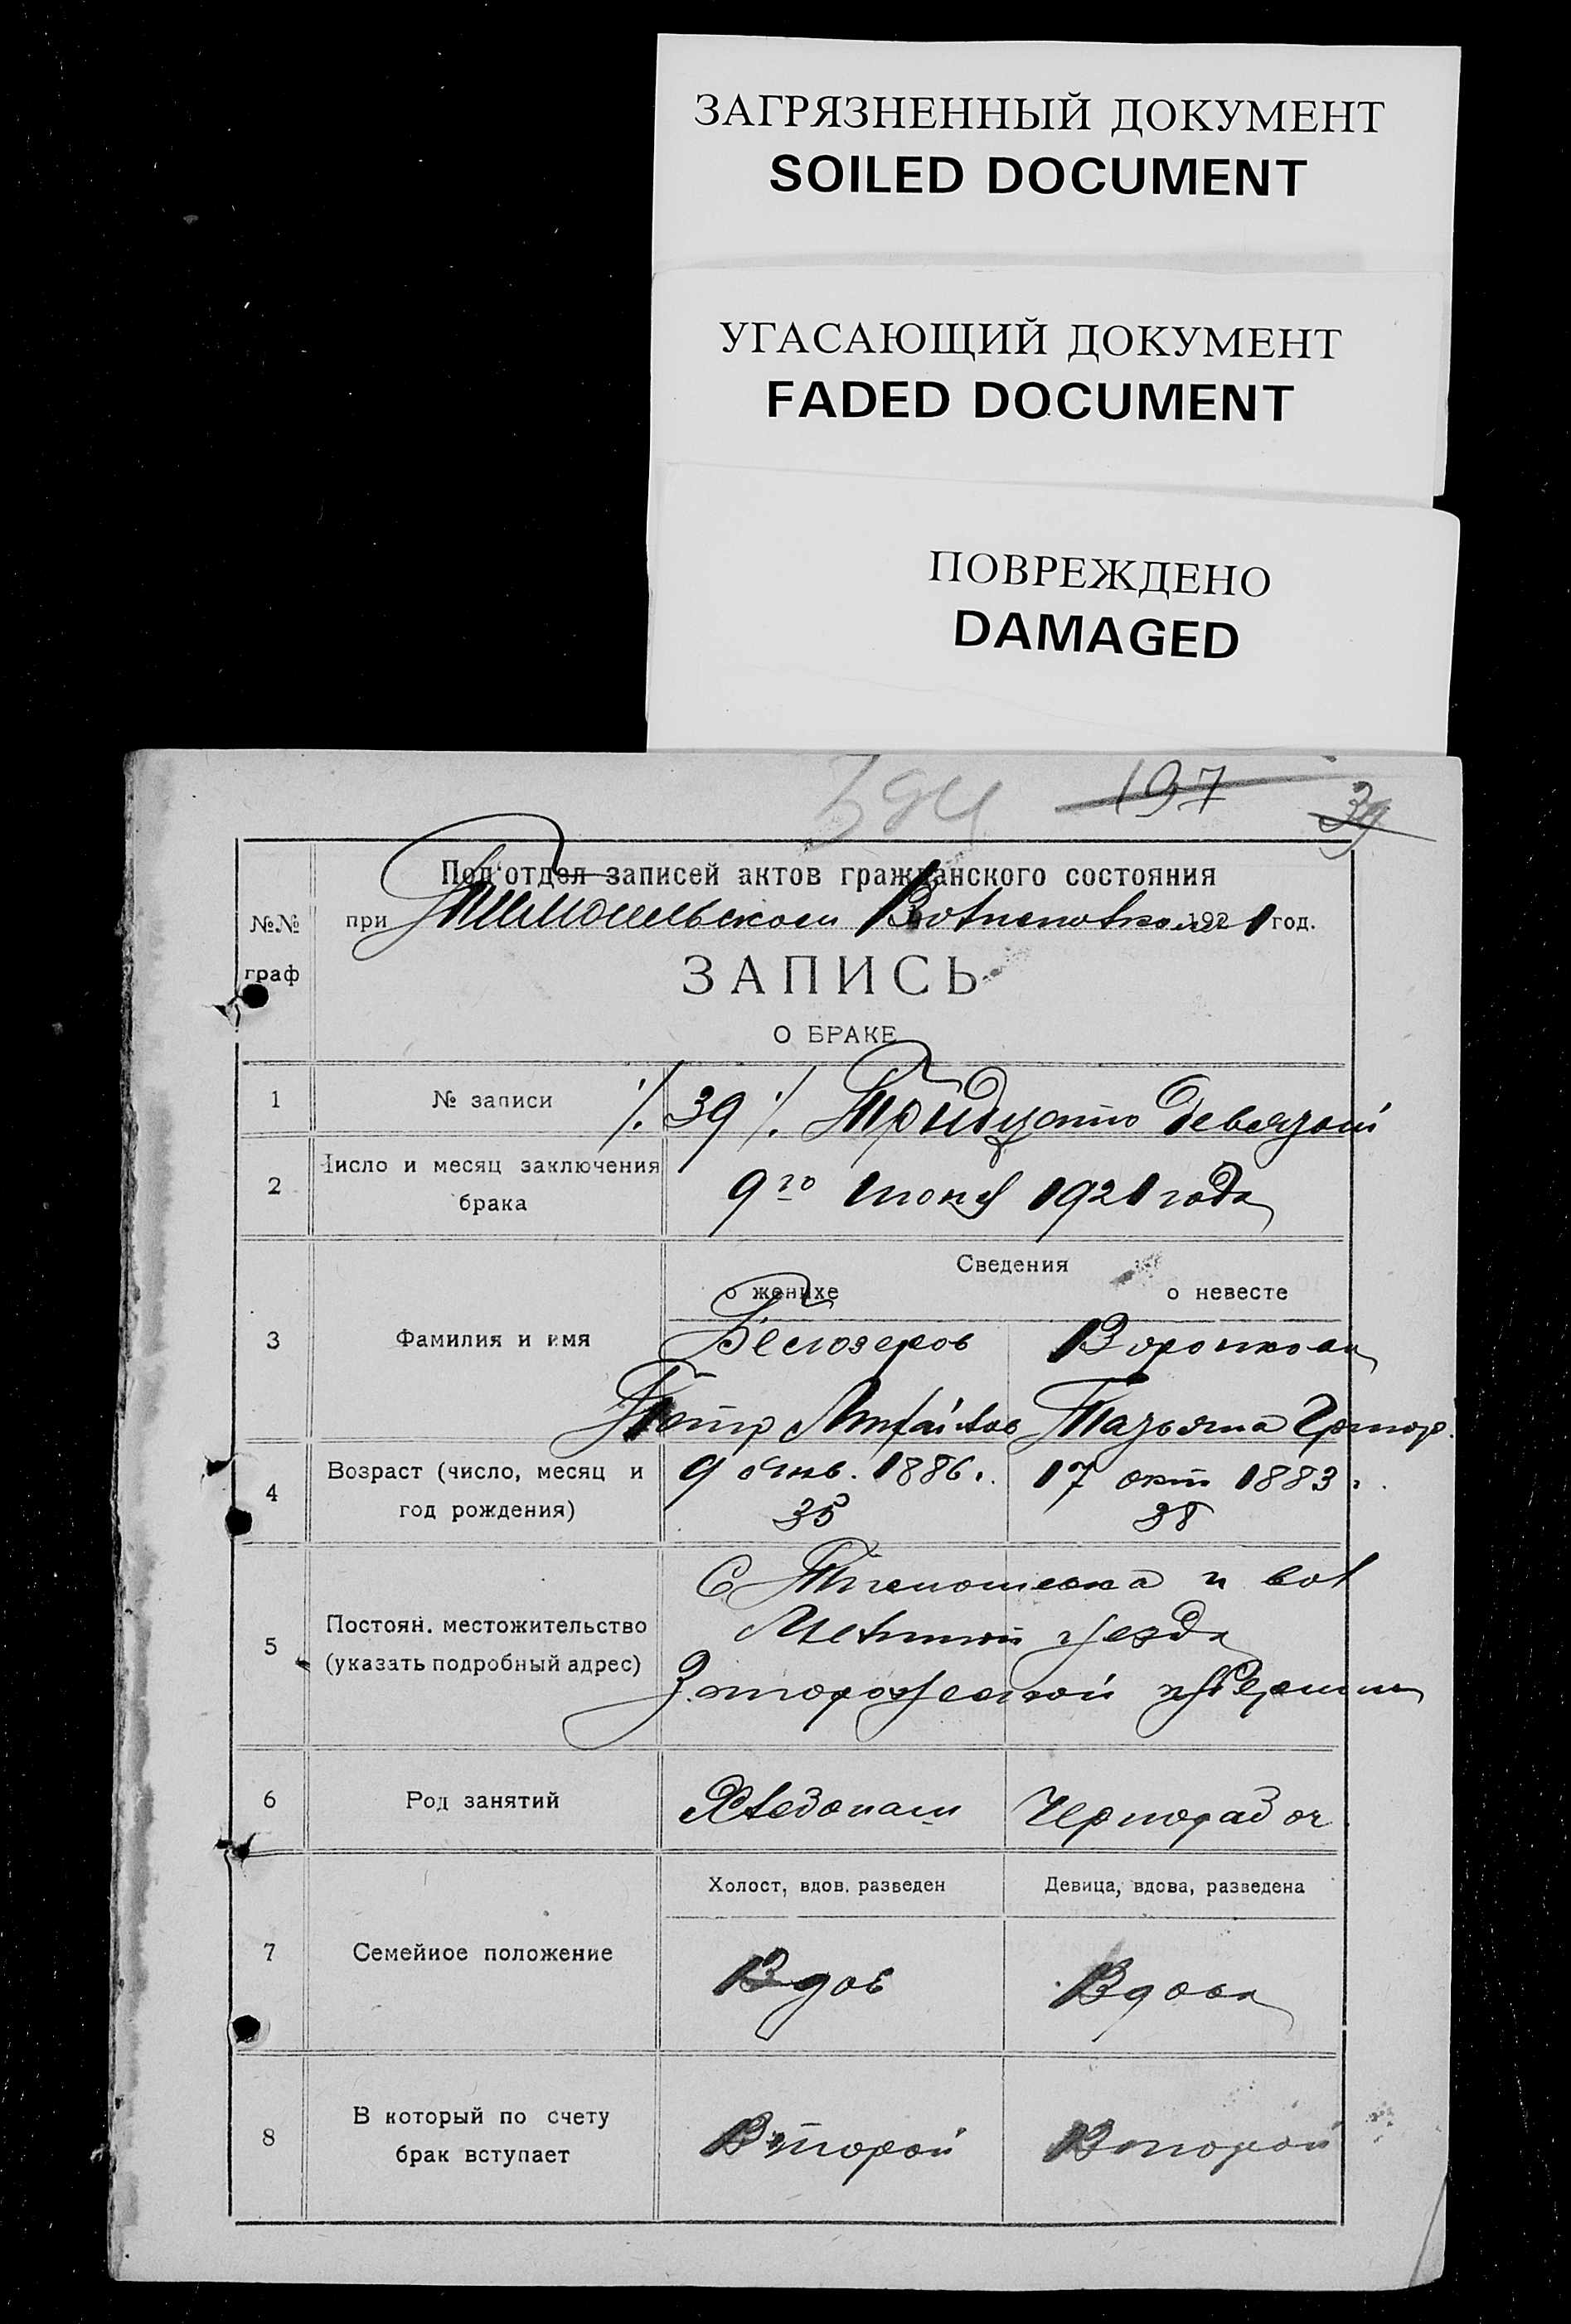 ЗАГРЯЗНЕННЫЙ ДОКУМЕНТ
SOILED DOCUMENT
УГАСАЮЩИЙ ДОКУМЕНТ
FADED DOCUMENT
ПОВРЕЖДЕНО
DAMAGED
197
39
Под'отдел записей актов гражданского состояния
№№ граф
при 1921 год.
ЗАПИСЬ
О БРАКЕ
1 № записи ./. 39 ./. Тридцать девятой
2 Число и месяц заключения брака
9го июня 1921 года
Сведения
о женихе о невесте
3 Фамилия и имя
Белозеров
Петр Татьяна Григор.
4 Возраст (число, месяц и год рождения)
9 янв. 1886. 17 окт 1883.
35 38
5 Постоян. местожительство (указать подробный адрес)
С. и вол
уезда
Запорожской губернии
6 Род занятий
Хлебопаш Чернорабоч
Холост, вдов, разведен Девица, вдова, разведена
7 Семейное положение
Вдов Вдова
8 В который по счету брак вступает
Второй Второй